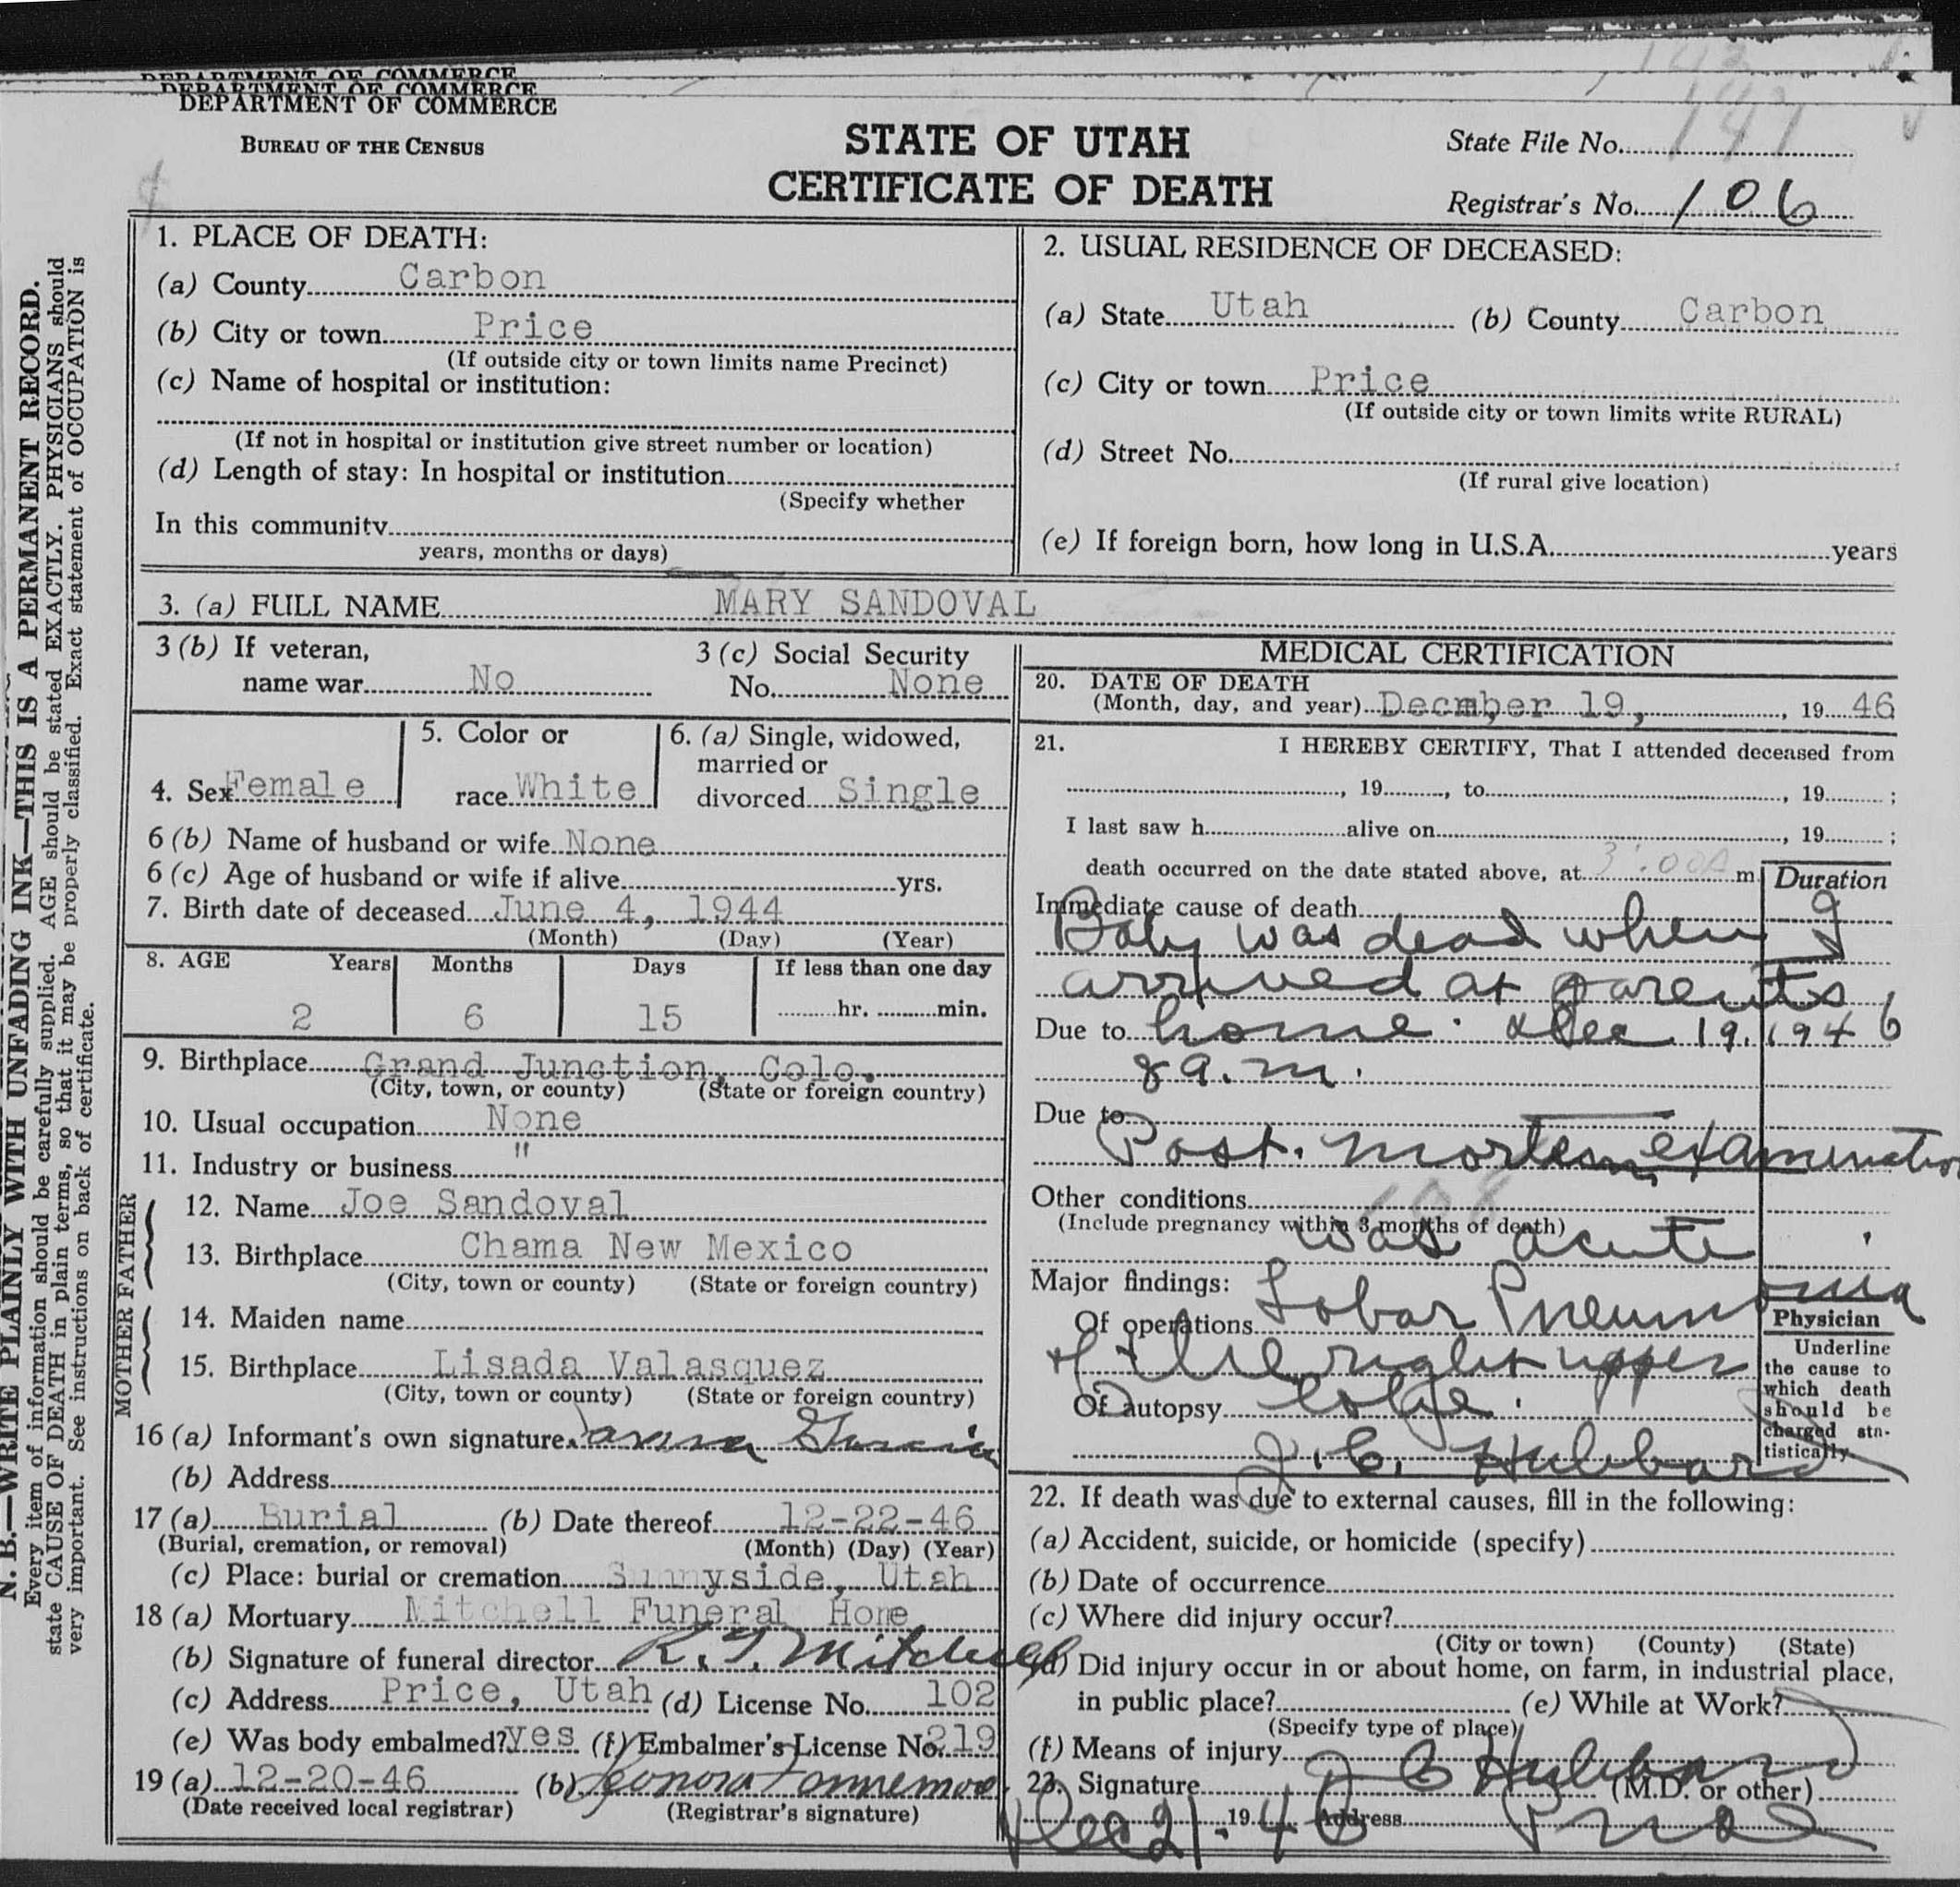 DEPARTMENT OF COMMERCE
DEPARTMENT OF COMMERCE
DEPARTMENT OF COMMERCE
BUREAU OF THE CENSUS
STATE OF UTAH
CERTIFICATE OF DEATH
State File No.
Registrar's No. 106
N. B.—WRITE PLAINLY WITH UNFADING INK—THIS IS A PERMANENT RECORD.
Every item of information should be carefully supplied. AGE should be stated EXACTLY. PHYSICIANS should
state CAUSE OF DEATH in plain terms, so that it may be properly classified. Exact statement of OCCUPATION is
very important. See instructions on back of certificate.
1. PLACE OF DEATH:
(a) County Carbon
(b) City or town Price
(If outside city or town limits name Precinct)
(c) Name of hospital or institution:
(If not in hospital or institution give street number or location)
(d) Length of stay: In hospital or institution
(Specify whether
In this community
years, months or days)
2. USUAL RESIDENCE OF DECEASED:
(a) State Utah (b) County Carbon
(c) City or town Price
(If outside city or town limits write RURAL)
(d) Street No.
(If rural give location)
(e) If foreign born, how long in U.S.A. years
3. (a) FULL NAME MARY SANDOVAL
3 (b) If veteran,
name war No
3 (c) Social Security
No. None
4. Sex Female
5. Color or
race White
6. (a) Single, widowed,
married or
divorced Single
6 (b) Name of husband or wife None
6 (c) Age of husband or wife if alive yrs.
7. Birth date of deceased June 4, 1944
(Month) (Day) (Year)
8. AGE Years Months Days If less than one day
2 6 15 hr. min.
9. Birthplace Grand Junction, Colo.
(City, town, or county) (State or foreign country)
10. Usual occupation None
11. Industry or business "
FATHER
12. Name Joe Sandoval
13. Birthplace Chama New Mexico
(City, town or county) (State or foreign country)
MOTHER
14. Maiden name
15. Birthplace Lisada Valasquez
(City, town or county) (State or foreign country)
16 (a) Informant's own signature
(b) Address
17 (a) Burial (b) Date thereof 12-22-46
(Burial, cremation, or removal) (Month) (Day) (Year)
(c) Place: burial or cremation Sunnyside, Utah
18 (a) Mortuary Mitchell Funeral Home
(b) Signature of funeral director R. T. Mitchell
(c) Address Price, Utah (d) License No. 102
(e) Was body embalmed? yes (f) Embalmer's License No. 219
19 (a) 12-20-46 (b)
(Date received local registrar) (Registrar's signature)
MEDICAL CERTIFICATION
20. DATE OF DEATH
(Month, day, and year) Decmber 19, 19 46
21. I HEREBY CERTIFY, That I attended deceased from
, 19 , to , 19 ;
I last saw h alive on , 19 ;
death occurred on the date stated above, at 3:00A m.
Duration
Immediate cause of death
Baby was dead when I
arrived at parents
Due to home. Dec 19, 1946
8 a.m.
Due to
Post. mortem examination
Other conditions
(Include pregnancy within 3 months of death)
was acute
Major findings:
Of operations Lobar Pneumonia
of the right upper
Of autopsy lobe.
J. C. Hubbard
Physician
Underline
the cause to
which death
should be
charged sta-
tistically.
22. If death was due to external causes, fill in the following:
(a) Accident, suicide, or homicide (specify)
(b) Date of occurrence
(c) Where did injury occur?
(City or town) (County) (State)
(d) Did injury occur in or about home, on farm, in industrial place,
in public place? (e) While at Work?
(Specify type of place)
(f) Means of injury
23. Signature J C Hubbard (M.D. or other)
Dec 21 - 19 46 Address Price